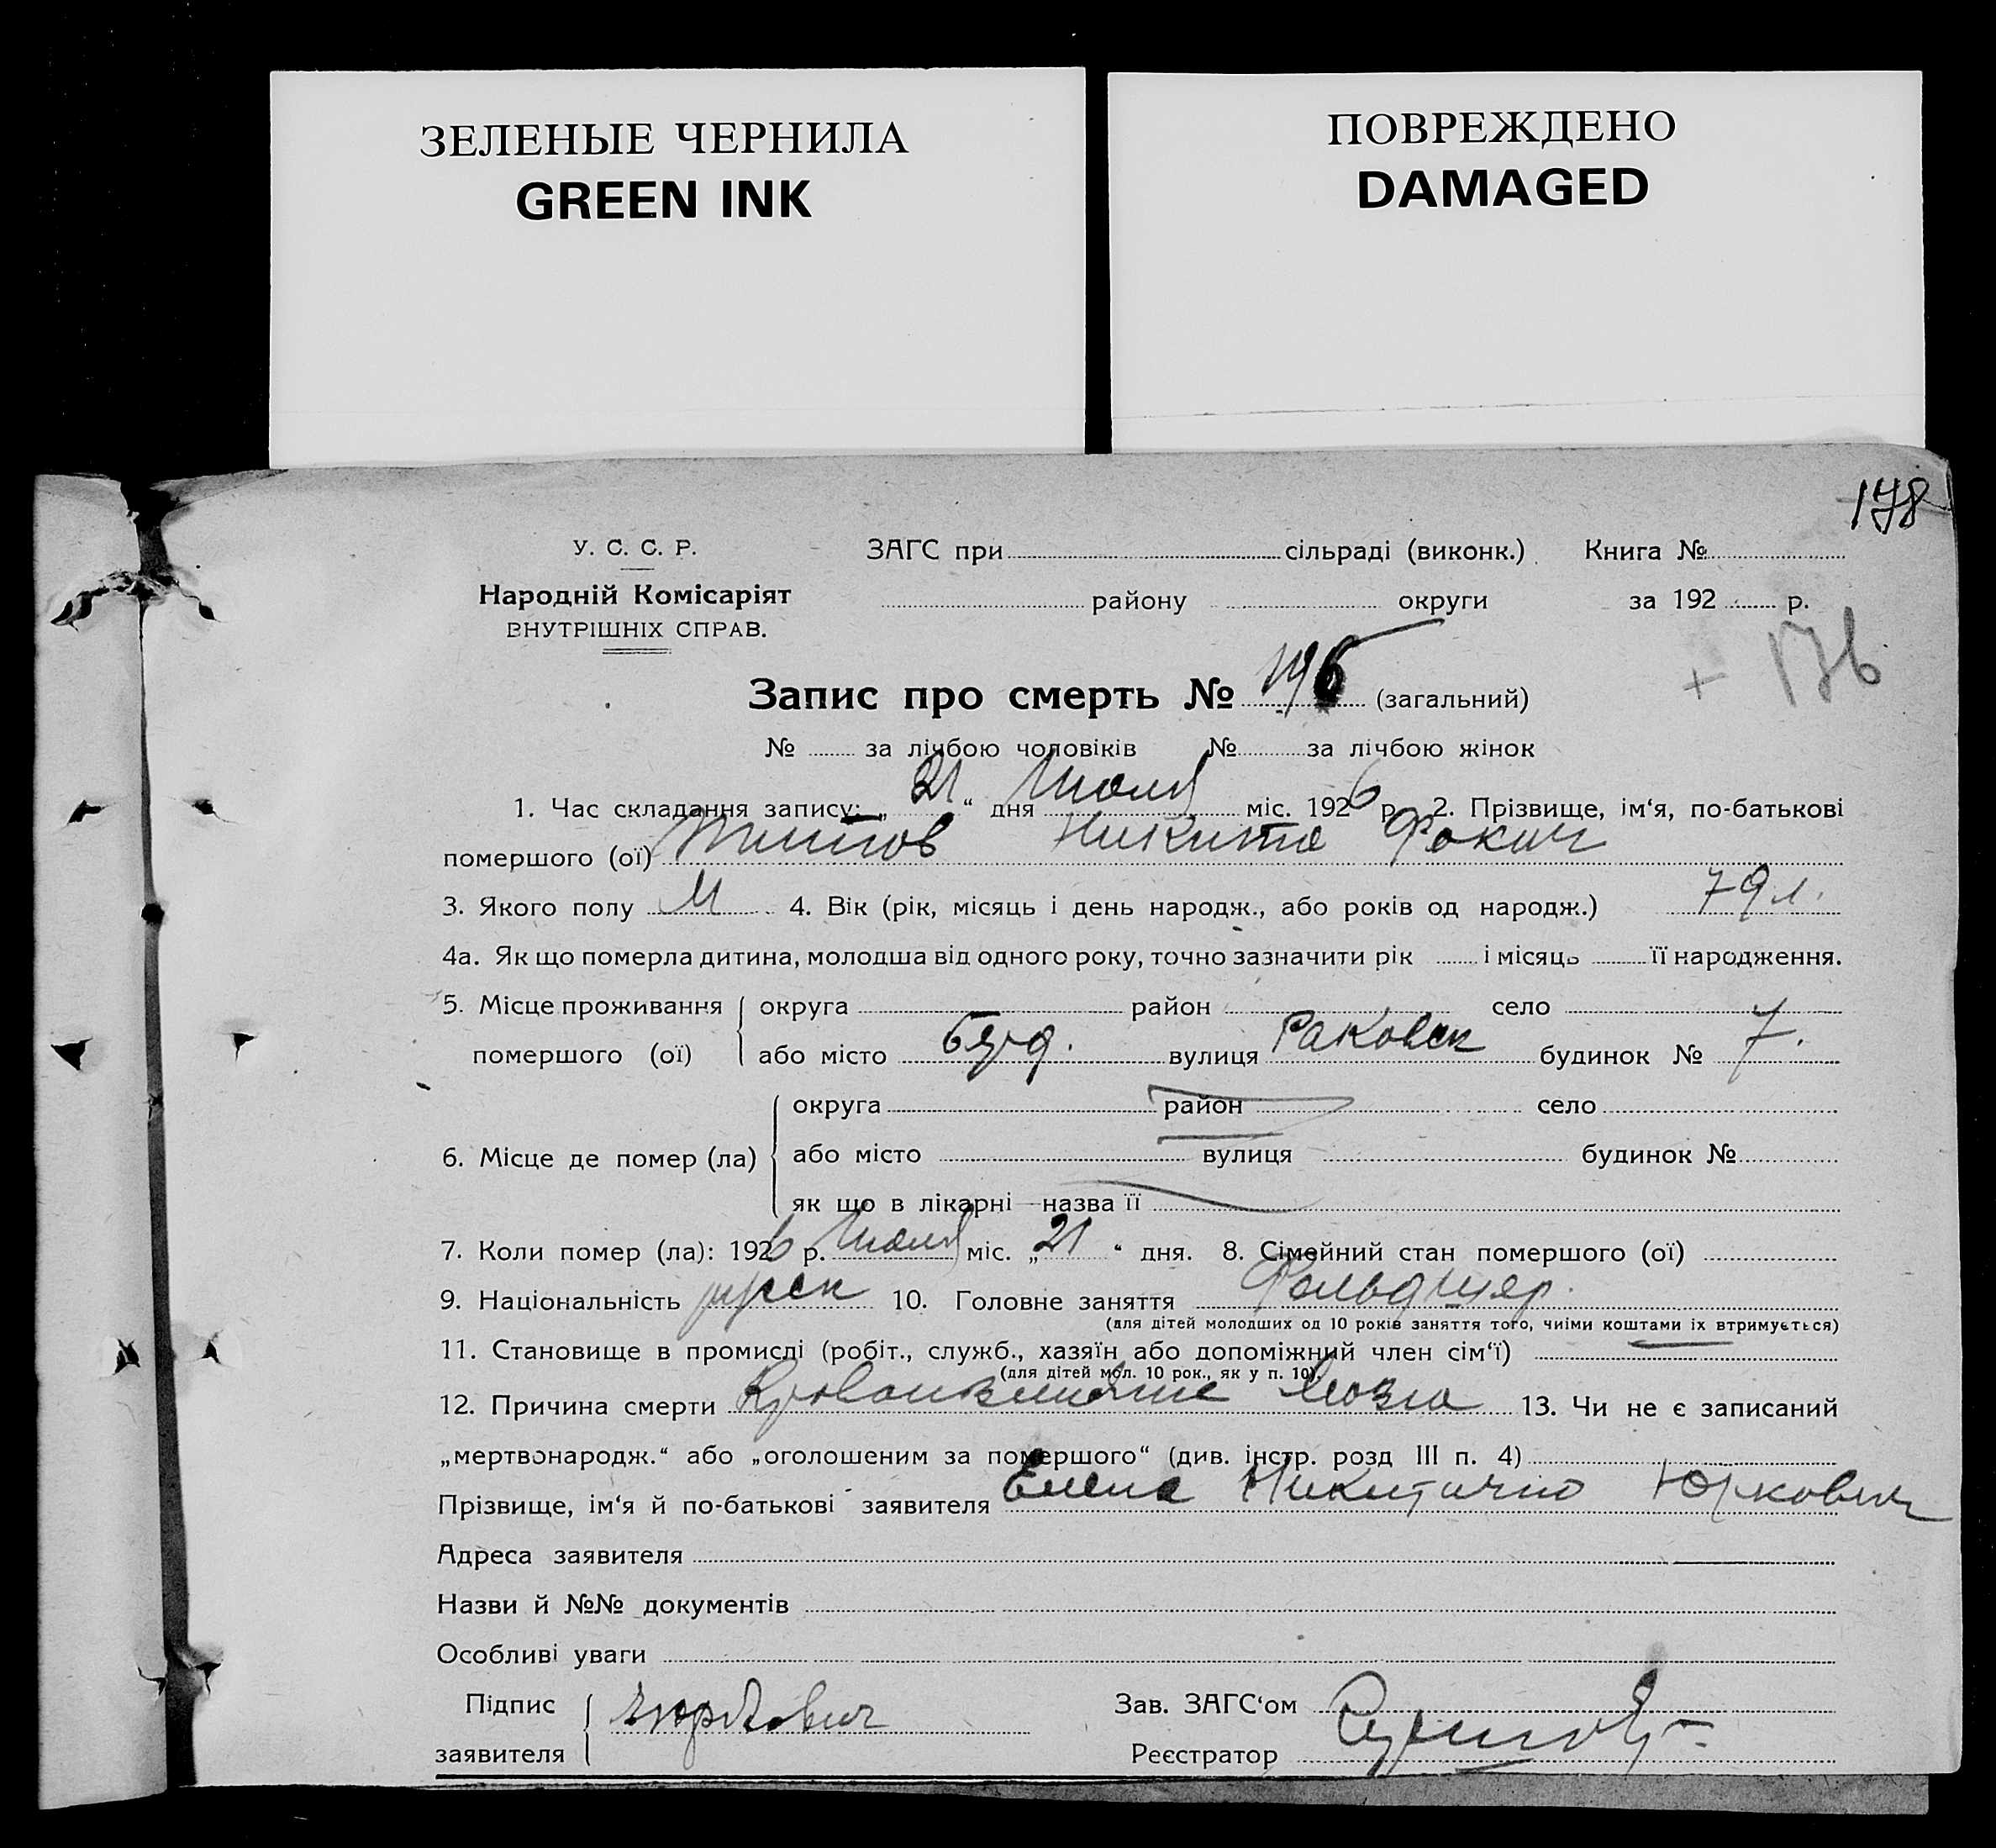 ЗЕЛЕНЫЕ ЧЕРНИЛА
GREEN INK
ПОВРЕЖДЕНО
DAMAGED
178
У. С. С. Р.
Народній Комісаріят
ВНУТРІШНІХ СПРАВ.
ЗАГС при сільраді (виконк.) Книга №
району округи за 192 р.
Запис про смерть № 196 (загальний)
+ 176
№ за лічбою чоловіків № за лічбою жінок
1. Час складання запису: „21“ дня Июля міс. 1926 р. 2. Прізвище, ім‘я, по-батькові
помершого (ої) Никита Фокич
3. Якого полу М 4. Вік (рік, місяць і день народж., або років од народж.) 79 л.
4а. Як що померла дитина, молодша від одного року, точно зазначити рік і місяць її народження.
5. Місце проживання округа район село
помершого (ої) або місто вулиця Раковск будинок № 7.
округа район село
6. Місце де помер (ла) або місто вулиця будинок №
як що в лікарні—назва її
7. Коли помер (ла): 1926 р. Июля міс. „21“ дня. 8. Сімейний стан помершого (ої)
9. Національність русск 10. Головне заняття Фельдшер.
(для дітей молодших од 10 років заняття того, чиїми коштами їх втримується)
11. Становище в промислі (робіт., служб., хазяїн або допоміжний член сім‘ї)
(для дітей мол. 10 рок., як у п. 10).
12. Причина смерти Кровоизлияние мозга 13. Чи не є записаний
„мертвонародж.“ або „оголошеним за помершого“ (див. інстр. розд III п. 4)
Прізвище, ім‘я й по-батькові заявителя Елена Никитична Юркович
Адреса заявителя
Назви й №№ документів
Особливі уваги
Підпис Зав. ЗАГС‘ом
заявителя Юркович Реєстратор